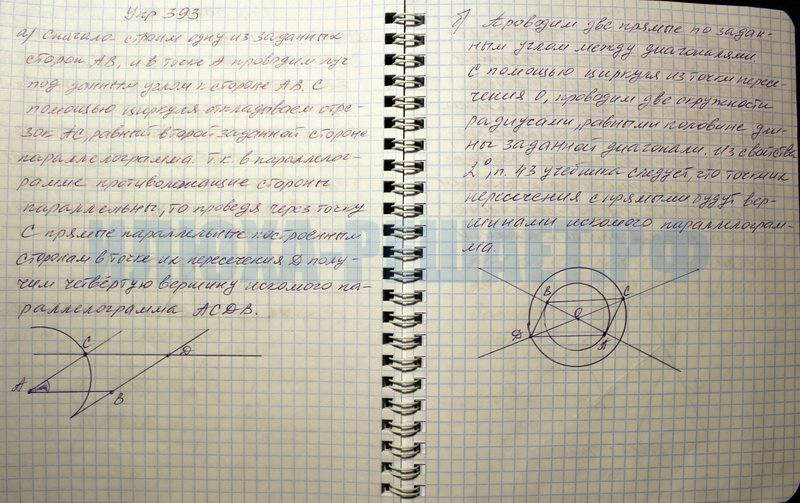 Упр 393
а) Сначала строим одну из заданных
сторон AB, и в точке A проводим луч
под данным углом к стороне AB. С
помощью циркуля откладываем отре-
зок AC, равный второй заданной стороне
параллелограмма. Т.к в параллелог-
рамме противолежащие стороны
параллельны, то проведя через точку
C прямые параллельные построенным
сторонам в точке их пересечения D полу-
чим четвёртую вершину искомого па-
раллелограмма ACDB.
C
D
A
B
б) Проводим две прямые по задан-
ным углом между диагоналями
С помощью циркуля из точки пересе-
чения O, проводим две окружности
радиусами, равными половине дли-
ны заданной диагонали. Из свойства
2°, п. 43 учебника следует, что точки
пересечения с прямыми будут вер-
шинами искомого параллелограм-
ма.
B
C
O
D
A